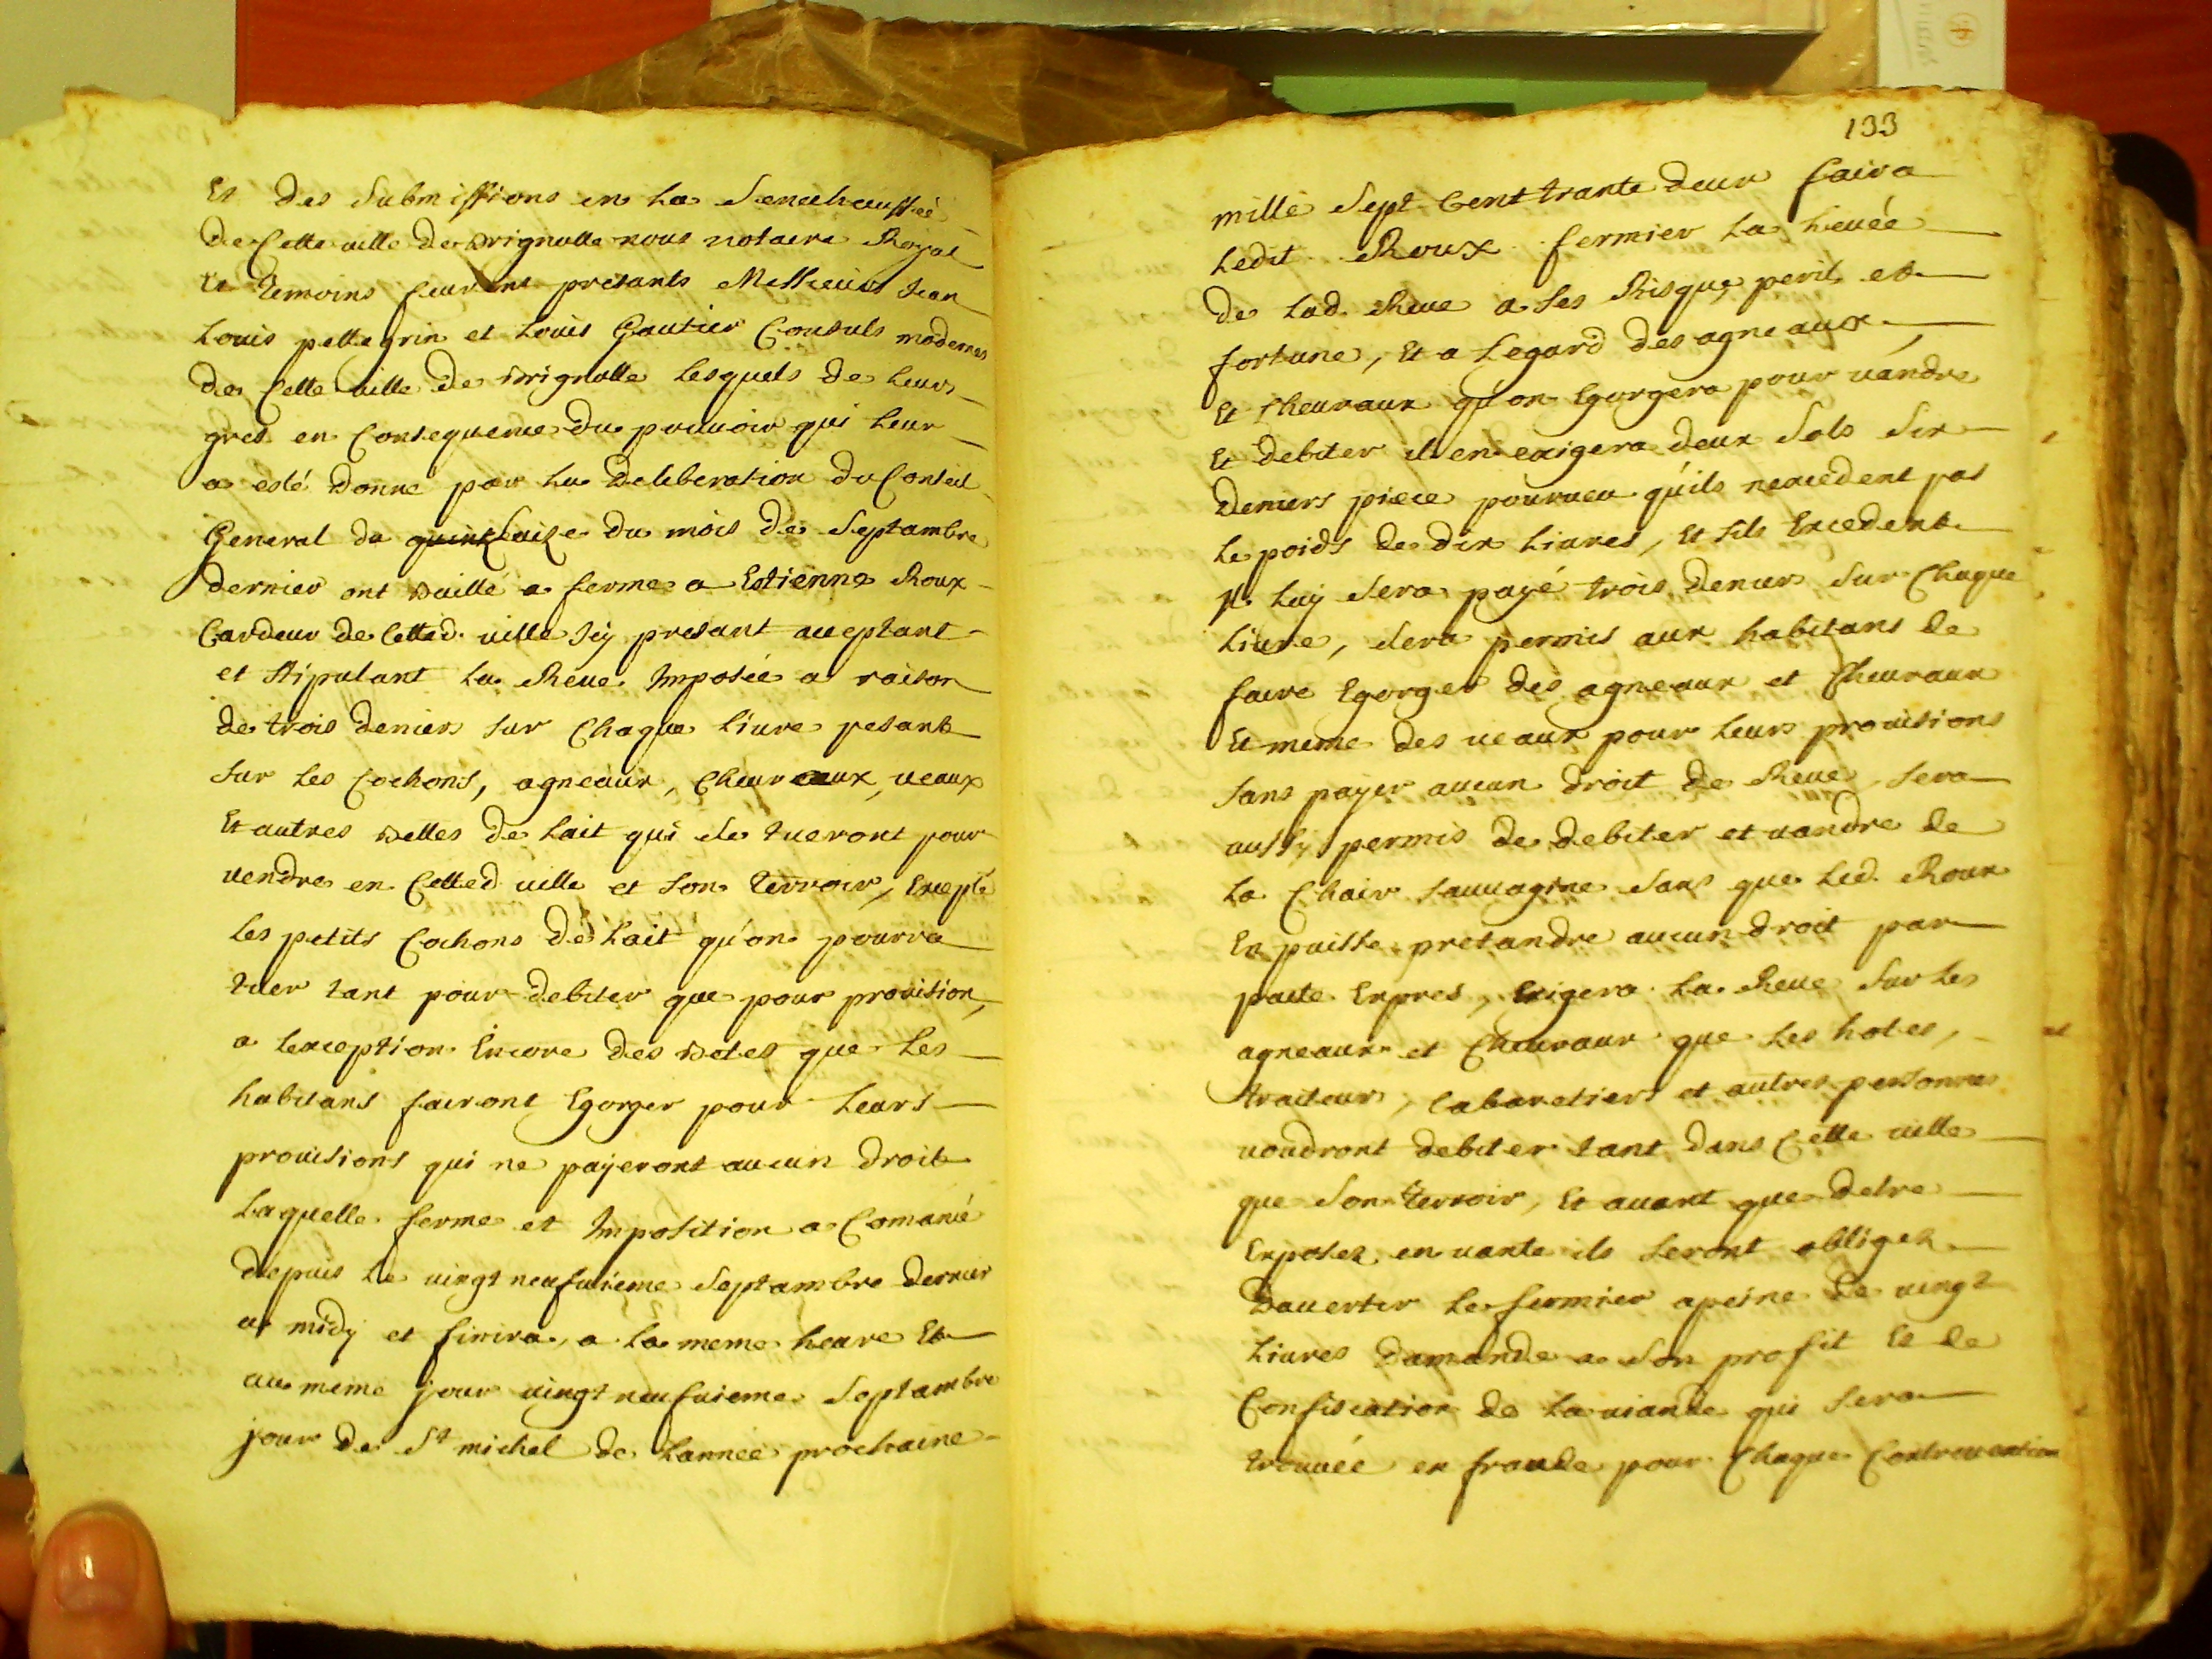 Et des Submissions en La Senechaussée
de Cette ville de Brignolle nous notaire Royal
et temoins furent presants Messieurs Jean
Louis pellegrin et Louis Gautier Consuls modernes
de Cette ville de Brignolle Lesquels de Leurs
gres en Consequence du pouvoir qui Leur
a esté Donné par La Deliberation du Conseil
General du du mois de Septambre
dernier ont Baillé a ferme a Estienne Roux
Cardeur de Cetted. ville Icy presant acceptant
et stipulant La Reve Imposée a raison
de trois deniers sur Chaque livre pesant
sur Les Cochons, agneaux, Chevraux, veaux
Et autres Belles de Lait qui se tueront pour
vendre en Cetted ville et son terroir, Excepté
Les petits Cochons de Lait qu'on pourra
tuer tant pour debiter que pour provision,
a lexception Encore des Betes que Les
habitans fairont Egorger pour Leurs
provisions qui ne payeront aucun droit
Laquelle ferme et Imposition a Comancé
depuis Le vingt neufvieme Septambre dernier
a midy et finira a La meme heure Et
au meme jour vingt neufvieme Septambre
jour de St michel de Lannée prochaine
133
mille Sept Cent trante deux faira
Ledit Roux fermier La Levée
de Lad. Reve a Ses Risque, peril, et
fortune, Et a Legard des agneaux
Et Chevraux qu'on Egorgera pour vandre
Et debiter il en exigera deux Sols Six
deniers piece pourveu qu'ils nexcedent pas
Le poids de dix Livres, Et sils Excedent
Il Luy Sera payé trois deniers Sur Chaque
Livre, Sera permis aux habitans de
faire Egorger des agneaux et Chevraux
Et meme des veaux pour Leurs provisions
Sans payer aucun droit de Reve, Sera
aussy permis de debiter et vandre de
La Chair Sauvagine Sans que Led. Roux
En puisse pretandre aucun droit par
pacte Expres, Exigera La Reve Sur Les
agneaux et Chevraux que Les hotes,
traiteurs, Cabaretiers et autres personnes
voudront debiter tant dans Cette ville
que Son terroir, Et avant que detre
Exposez en vante ils Seront obligez
Davertir Le fermier apeine de vingt
Livres Damande a Son profit Et de
Confiscation de La viande qui Sera
trouvée en fraude pour Chaque Contravention